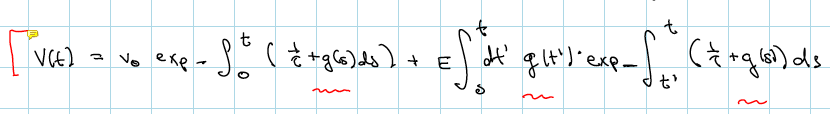 V(t) = v₀ exp - ∫₀ᵗ ( 1/τ + g(s) ds ) + E ∫₀ᵗ dt' g(t') · exp - ∫ₜ'ᵗ ( 1/τ + g(s) ) ds